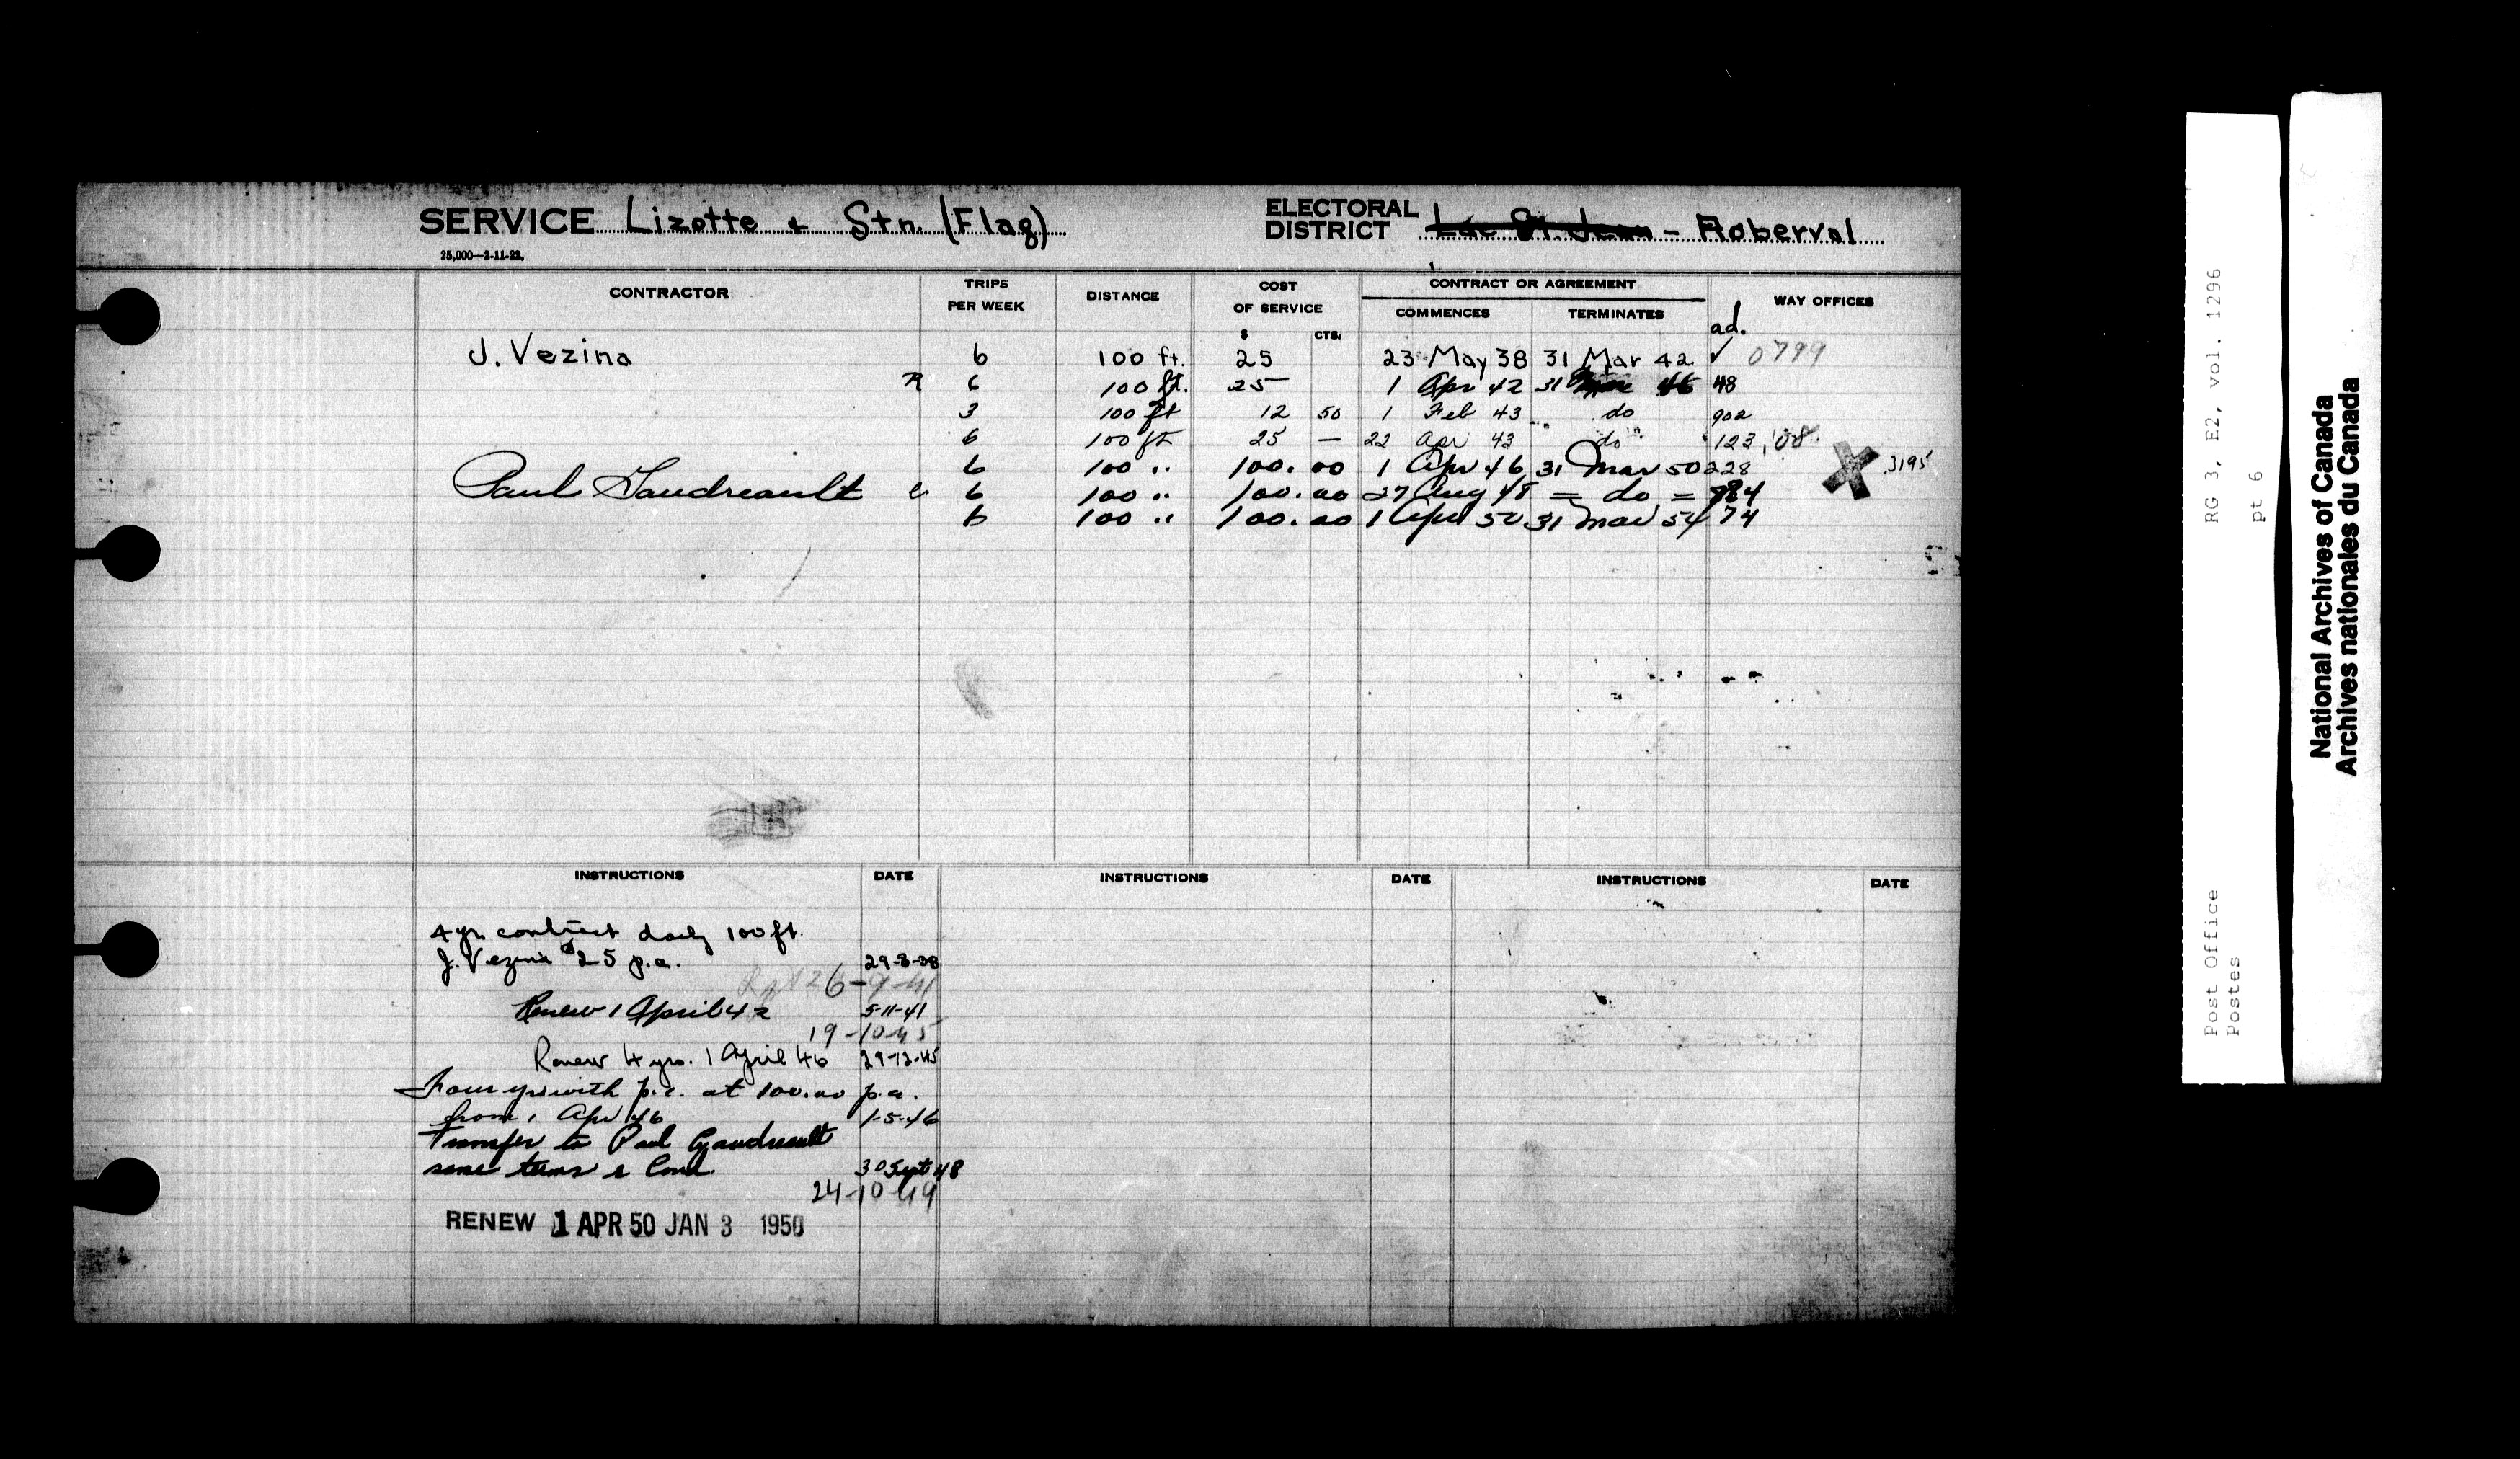 SERVICE Lizotte & Stn. (Flag)
ELECTORAL DISTRICT Lac St. Jean - Roberval
25,000—2-11-22.
CONTRACTOR TRIPS PER WEEK DISTANCE COST OF SERVICE $ CTS. CONTRACT OR AGREEMENT COMMENCES TERMINATES WAY OFFICES
ad.
J. Vezina 6 100 ft. 25 23 May 38 31 Mar 42 ✓ 0799
R 6 100 ft. 25 1 Apr 42 31 Mar 46 48
3 100 ft 12 50 1 Feb 43 do 902
6 100 ft 25 — 22 Apr 43 do 123,
6 100 " 100.00 1 Apr 46 31 Mar 50 228 X 3195
Paul Gaudreault 6 100 " 100.00 27 Aug 48 = do = 784
6 100 " 100.00 1 Apr 50 31 Mar 54 74
INSTRUCTIONS DATE INSTRUCTIONS DATE INSTRUCTIONS DATE
4 yr. contract daily 100 ft.
J. Vezina $25 p.a. 29-8-38
26-9-41
Renew 1 April 42 5-11-41
19-10-45
Renew 4 yrs. 1 April 46 29-12-45
Four yrs with p.c. at 100.00 p.a.
from 1 Apr 46 1-5-46
Transfer to Paul Gaudreault
same terms & Cond. 30 Sept 48
24-10-49
RENEW 1 APR 50 JAN 3 1950
Post Office
Postes
RG 3, E2, vol. 1296
pt 6
National Archives of Canada
Archives nationales du Canada